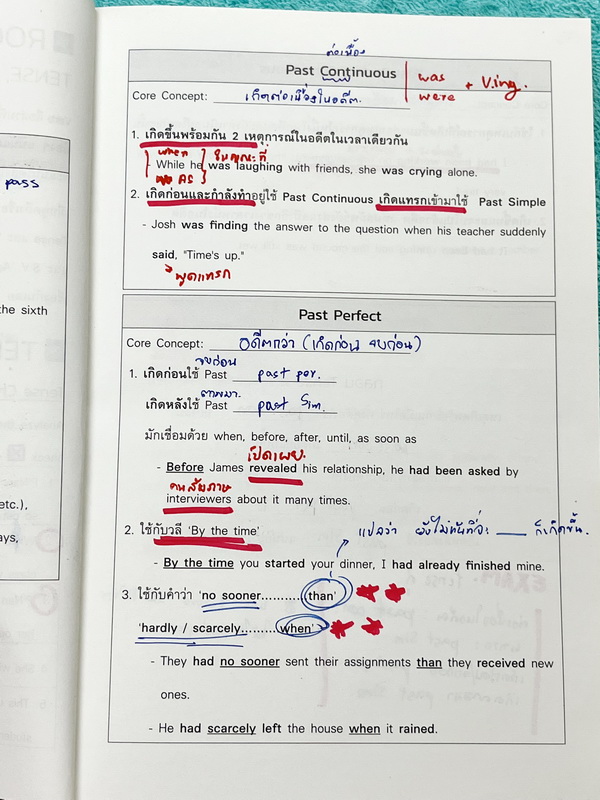 ต่อเนื่อง
Past Continuous
was
were + V.ing.
Core Concept: เกิดต่อเนื่องในอดีต.
1. เกิดขึ้นพร้อมกัน 2 เหตุการณ์ในอดีตในเวลาเดียวกัน
when
ในขณะที่
While he was laughing with friends, she was crying alone.
AS
2. เกิดก่อนและกำลังทำอยู่ใช้ Past Continuous เกิดแทรกเข้ามาใช้ Past Simple
- Josh was finding the answer to the question when his teacher suddenly
said, "Time's up."
พูดแทรก
Past Perfect
Core Concept: อดีตกว่า (เกิดก่อน จบก่อน)
จบก่อน
1. เกิดก่อนใช้ Past past per.
ตามมา.
เกิดหลังใช้ Past past Sim.
มักเชื่อมด้วย when, before, after, until, as soon as
เปิดเผย.
- Before James revealed his relationship, he had been asked by
คนสัมภาษ
interviewers about it many times.
2. ใช้กับวลี 'By the time'
แปลว่า ยังไม่ทันที่จะ ___ ก็เกิดขึ้น.
- By the time you started your dinner, I had already finished mine.
3. ใช้กับคำว่า 'no sooner..........than'
'hardly / scarcely.........when'
- They had no sooner sent their assignments than they received new
ones.
- He had scarcely left the house when it rained.
pass
the sixth
etc.),
ays,